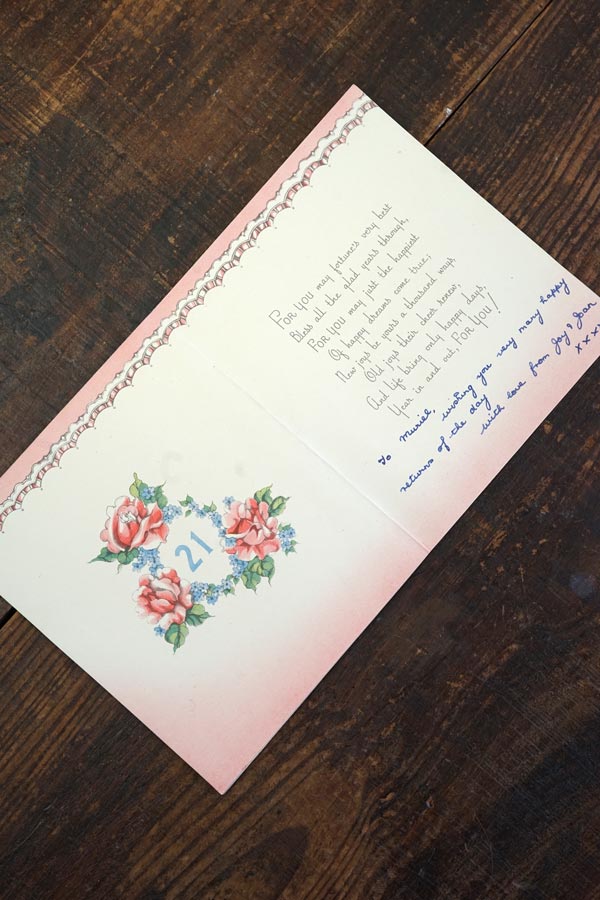 21
FOR YOU may fortune's very best
Bless all the glad years through,
FOR YOU may just the happiest
Of happy dreams come true;
New joys be yours a thousand ways
Old joys their cheer renew,
And life bring only happy days,
Year in and out, FOR YOU!
To Muriel, wishing you very many happy
returns of the day
with love from Joy & Jean
xxxx